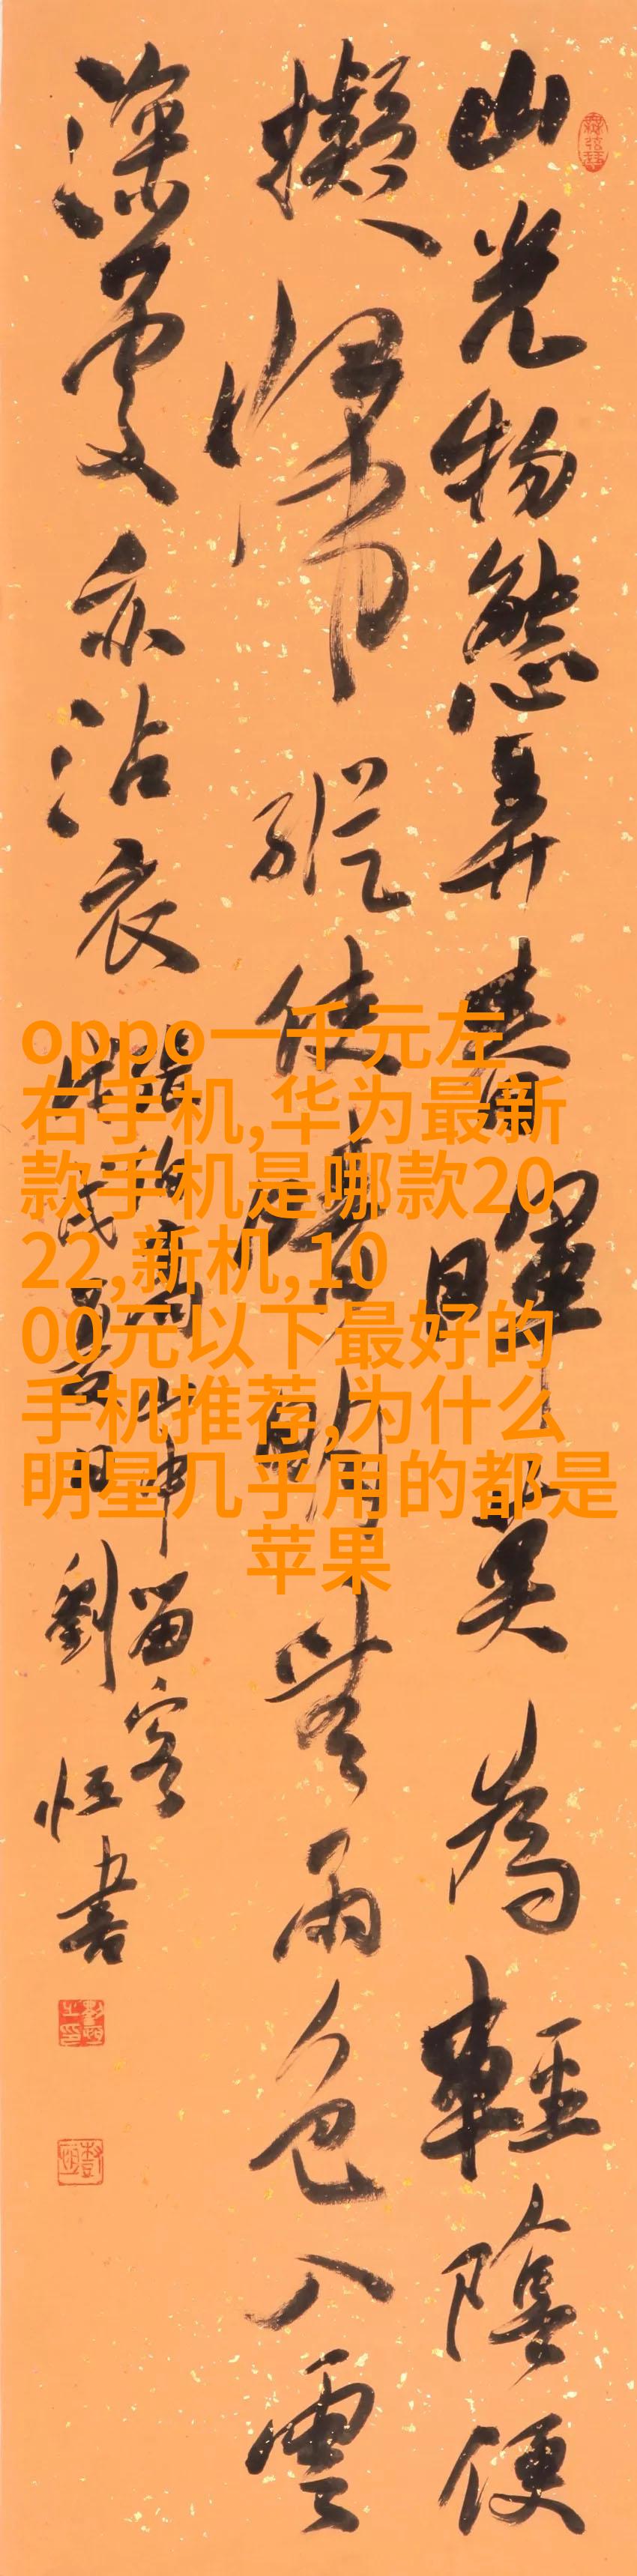 山光物態弄春暉莫為輕陰便
擬歸縱使晴明無雨色入雲
深處亦沾衣
張旭 山中留客
戊
劉恒書
oppo一千元左
右手机,华为最新
款手机是哪款20
22,新机,10
00元以下最好的
手机推荐,为什么
明星几乎用的都是
苹果